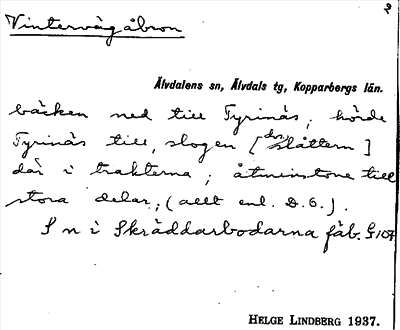 2
Vintervägåbron
Älvdalens sn, Älvdals tg, Kopparbergs län.
bäcken ned till Tyrinäs; hörde
Tyrinäs till, slogen [dvs slåttern]
där i trakterna; åtminstone till
stora delar; (allt enl. D.O.).
S n i Skräddarbodarna fäb.
HELGE LINDBERG 1937.